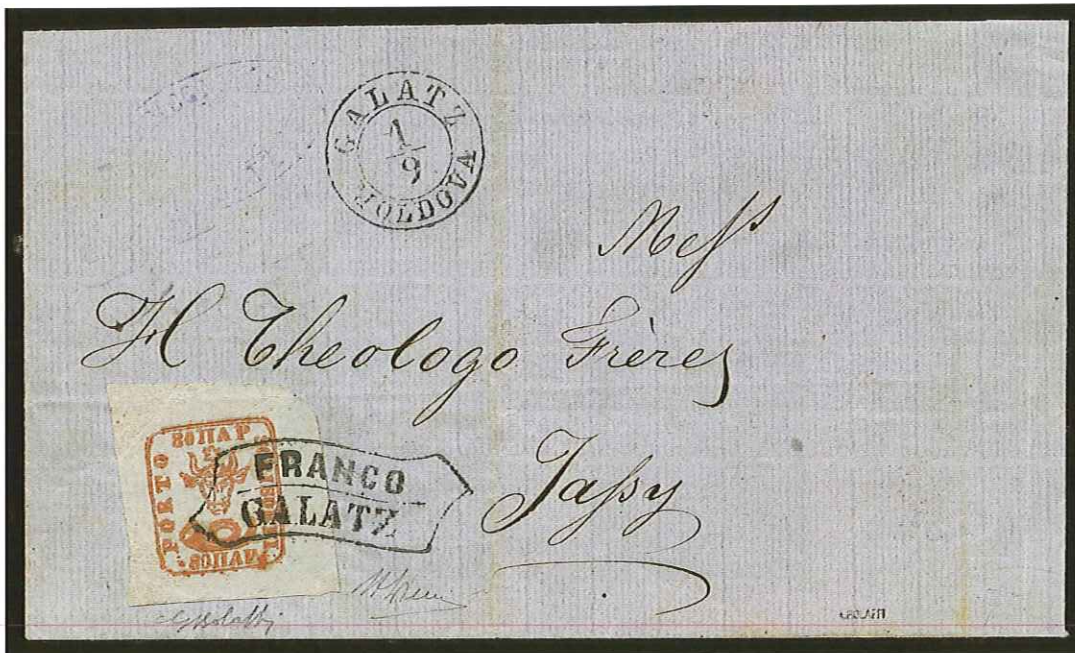 GALATZ
1/9
MOLDOVA
Mess
H Theologo Frères
Jassy
80 ПАР
PORTO
80 ПАР
FRANCO
GALATZ